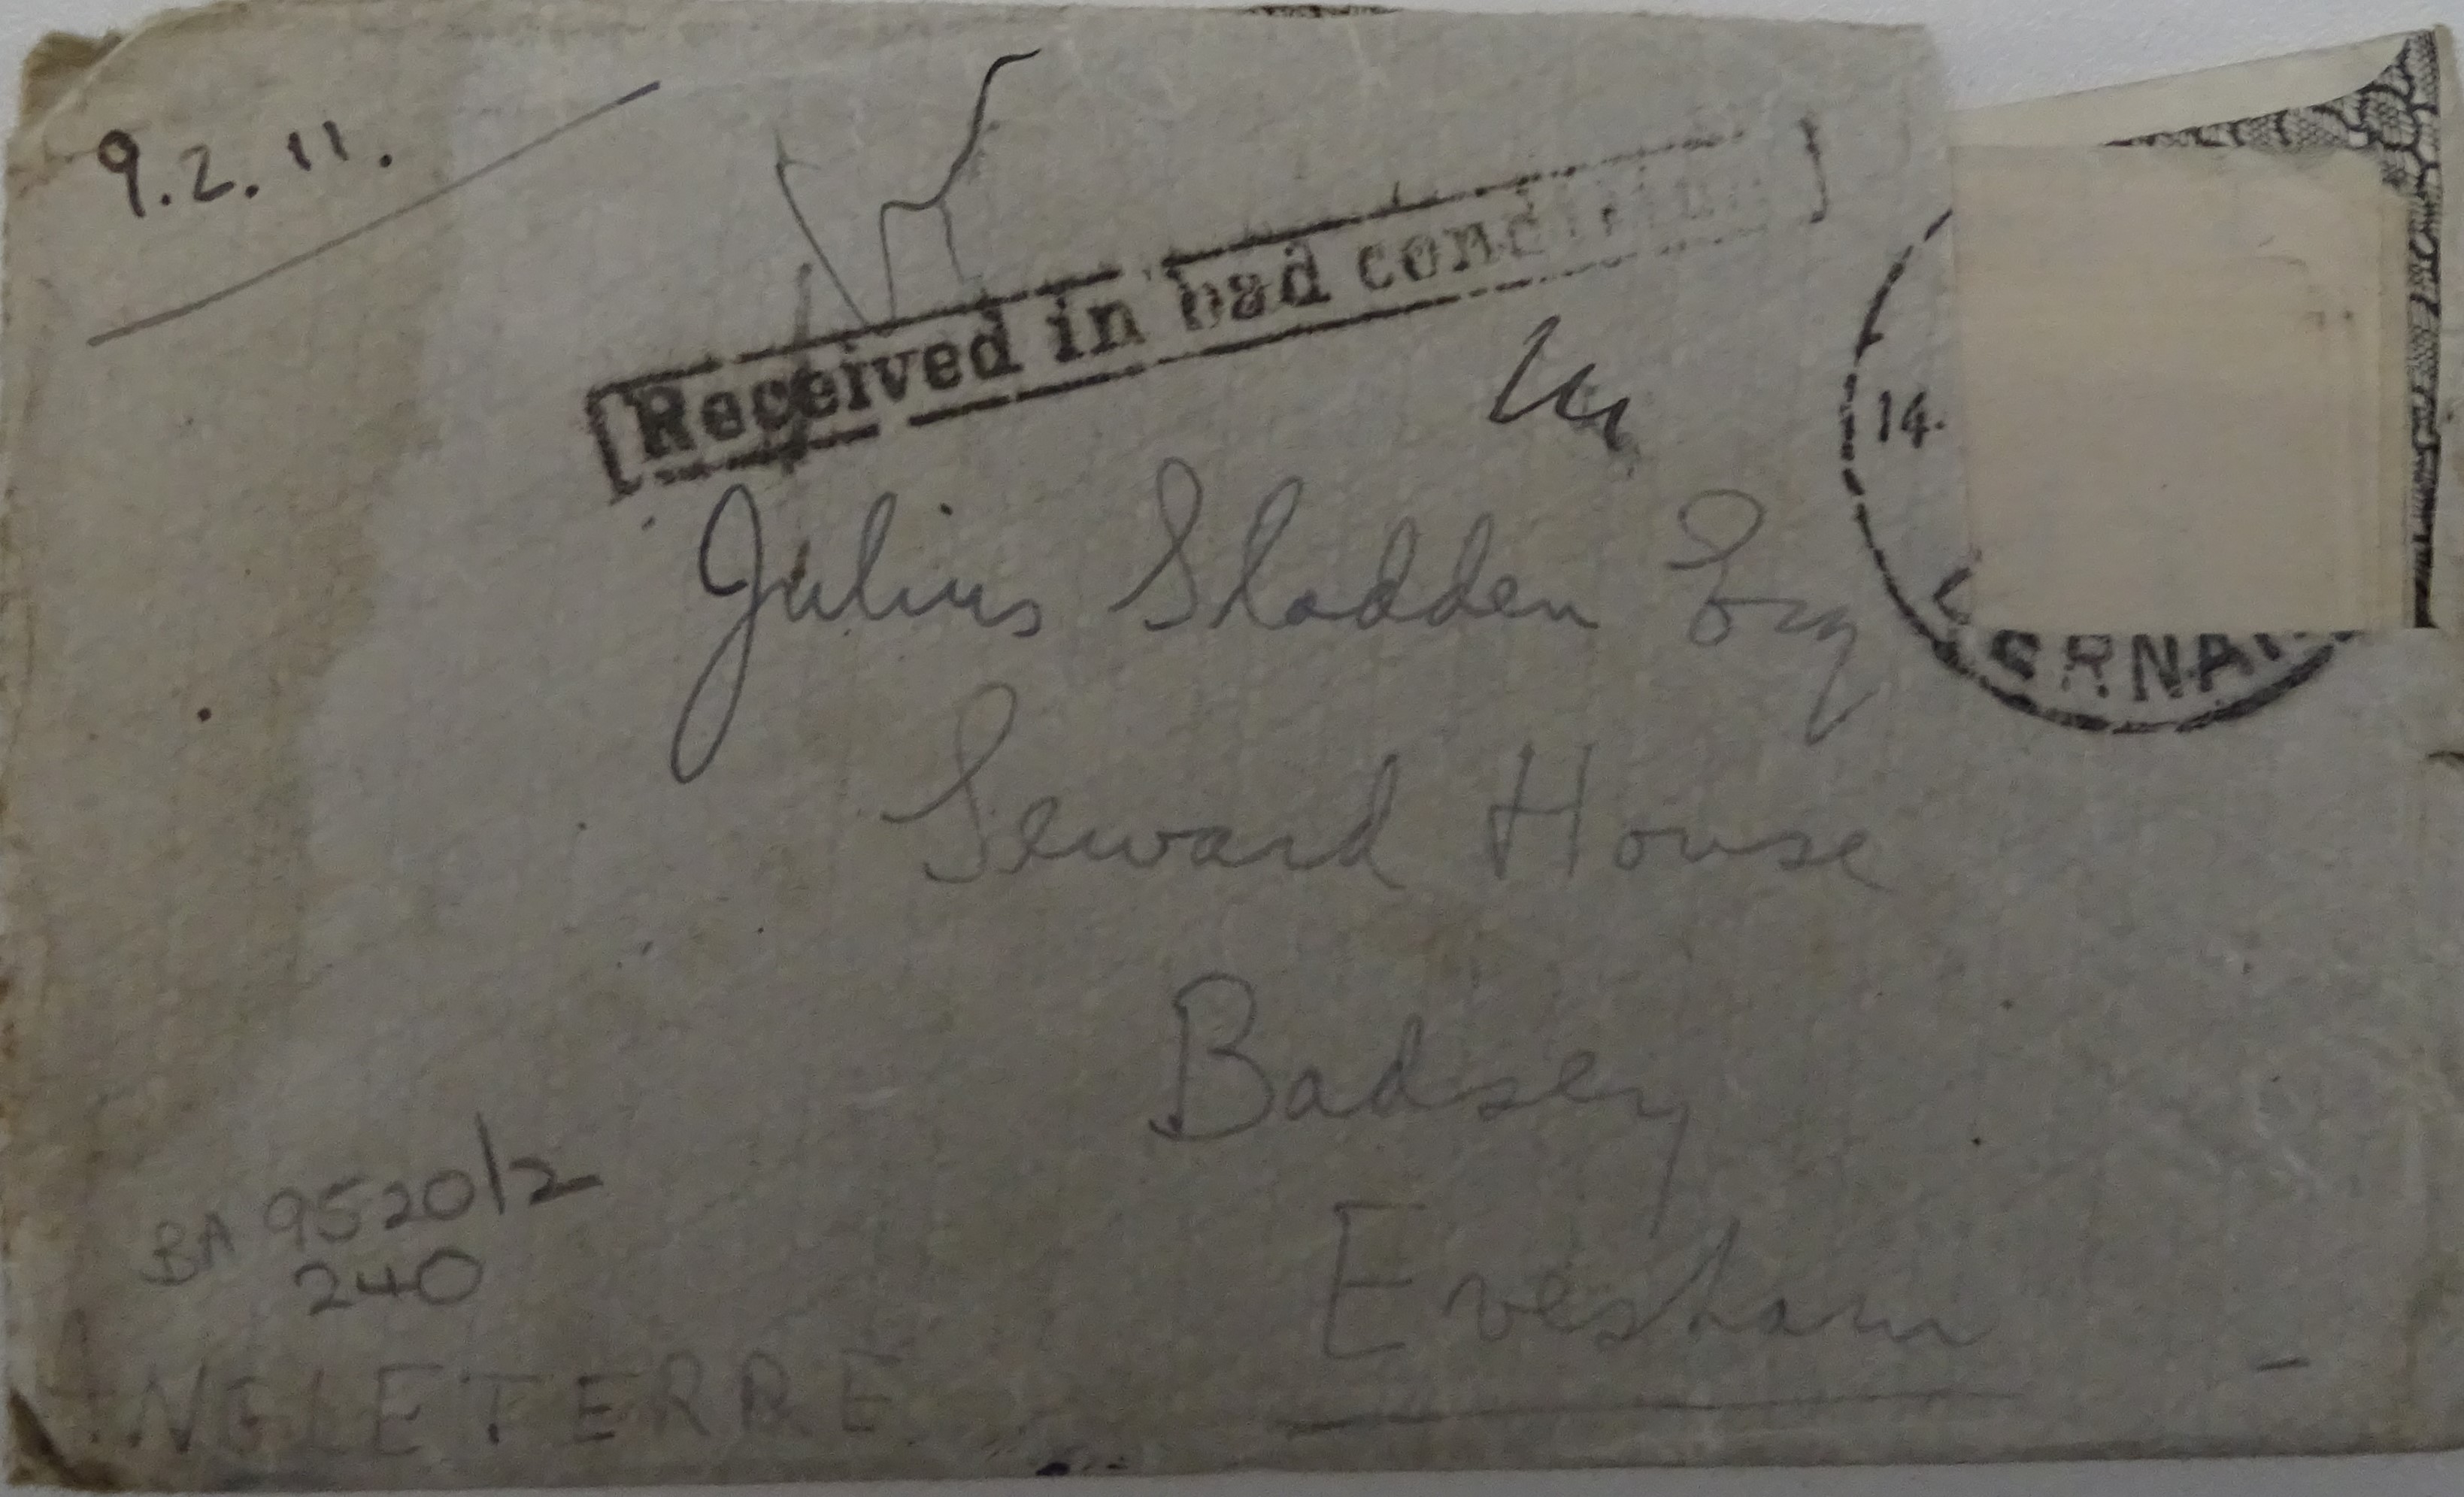 9.2.11.
Received in bad condition
14.
Julius Sladden Esq
Seward House
Badsey
Evesham
BA 9520/2
240
ANGLETERRE